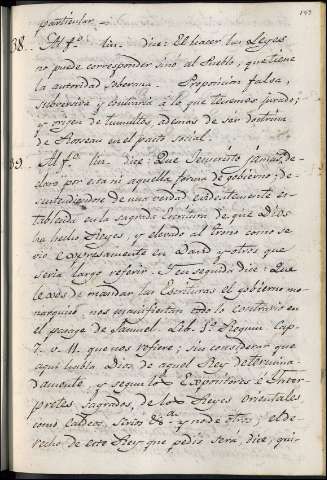 particular.
38. Al fo. lin. dice: El hacer las Leyes
no puede corresponder sino al Pueblo, que tiene
la autoridad Soberana. Proposicion falsa,
subversiva y contraria á lo que tenemos jurado;
y origen de tumultos, ademas de ser doctrina
de Rosseau en el pacto social.
39. Al fo. lin. dice: Que Jesucristo jamas de-
claró por esta ni aquella forma de gobierno; de-
sentendiendose de una verdad evidentemente es-
tablecida en la sagrada Escritura de que Dios
ha hecho Reyes, y elevado al trono como se
vió expresamente en David y otros que
seria largo referir. Y en seguida dice: Que
lexos de mandar las Escrituras el gobierno mo-
narquico, nos manifiestan todo lo contrario en
el pasage de Samuel. Lib. 1o Regum Cap.
7. v. 11. que nos refiere; sin considerar que
aqui habla Dios de aquel Rey determina-
damente, y segun los Expositores é Inter-
pretes sagrados, de los Reyes orientales
como Caldeos, Sirios &a y no de otros; el de-
recho de este Rey que pedis será, dice, qui-